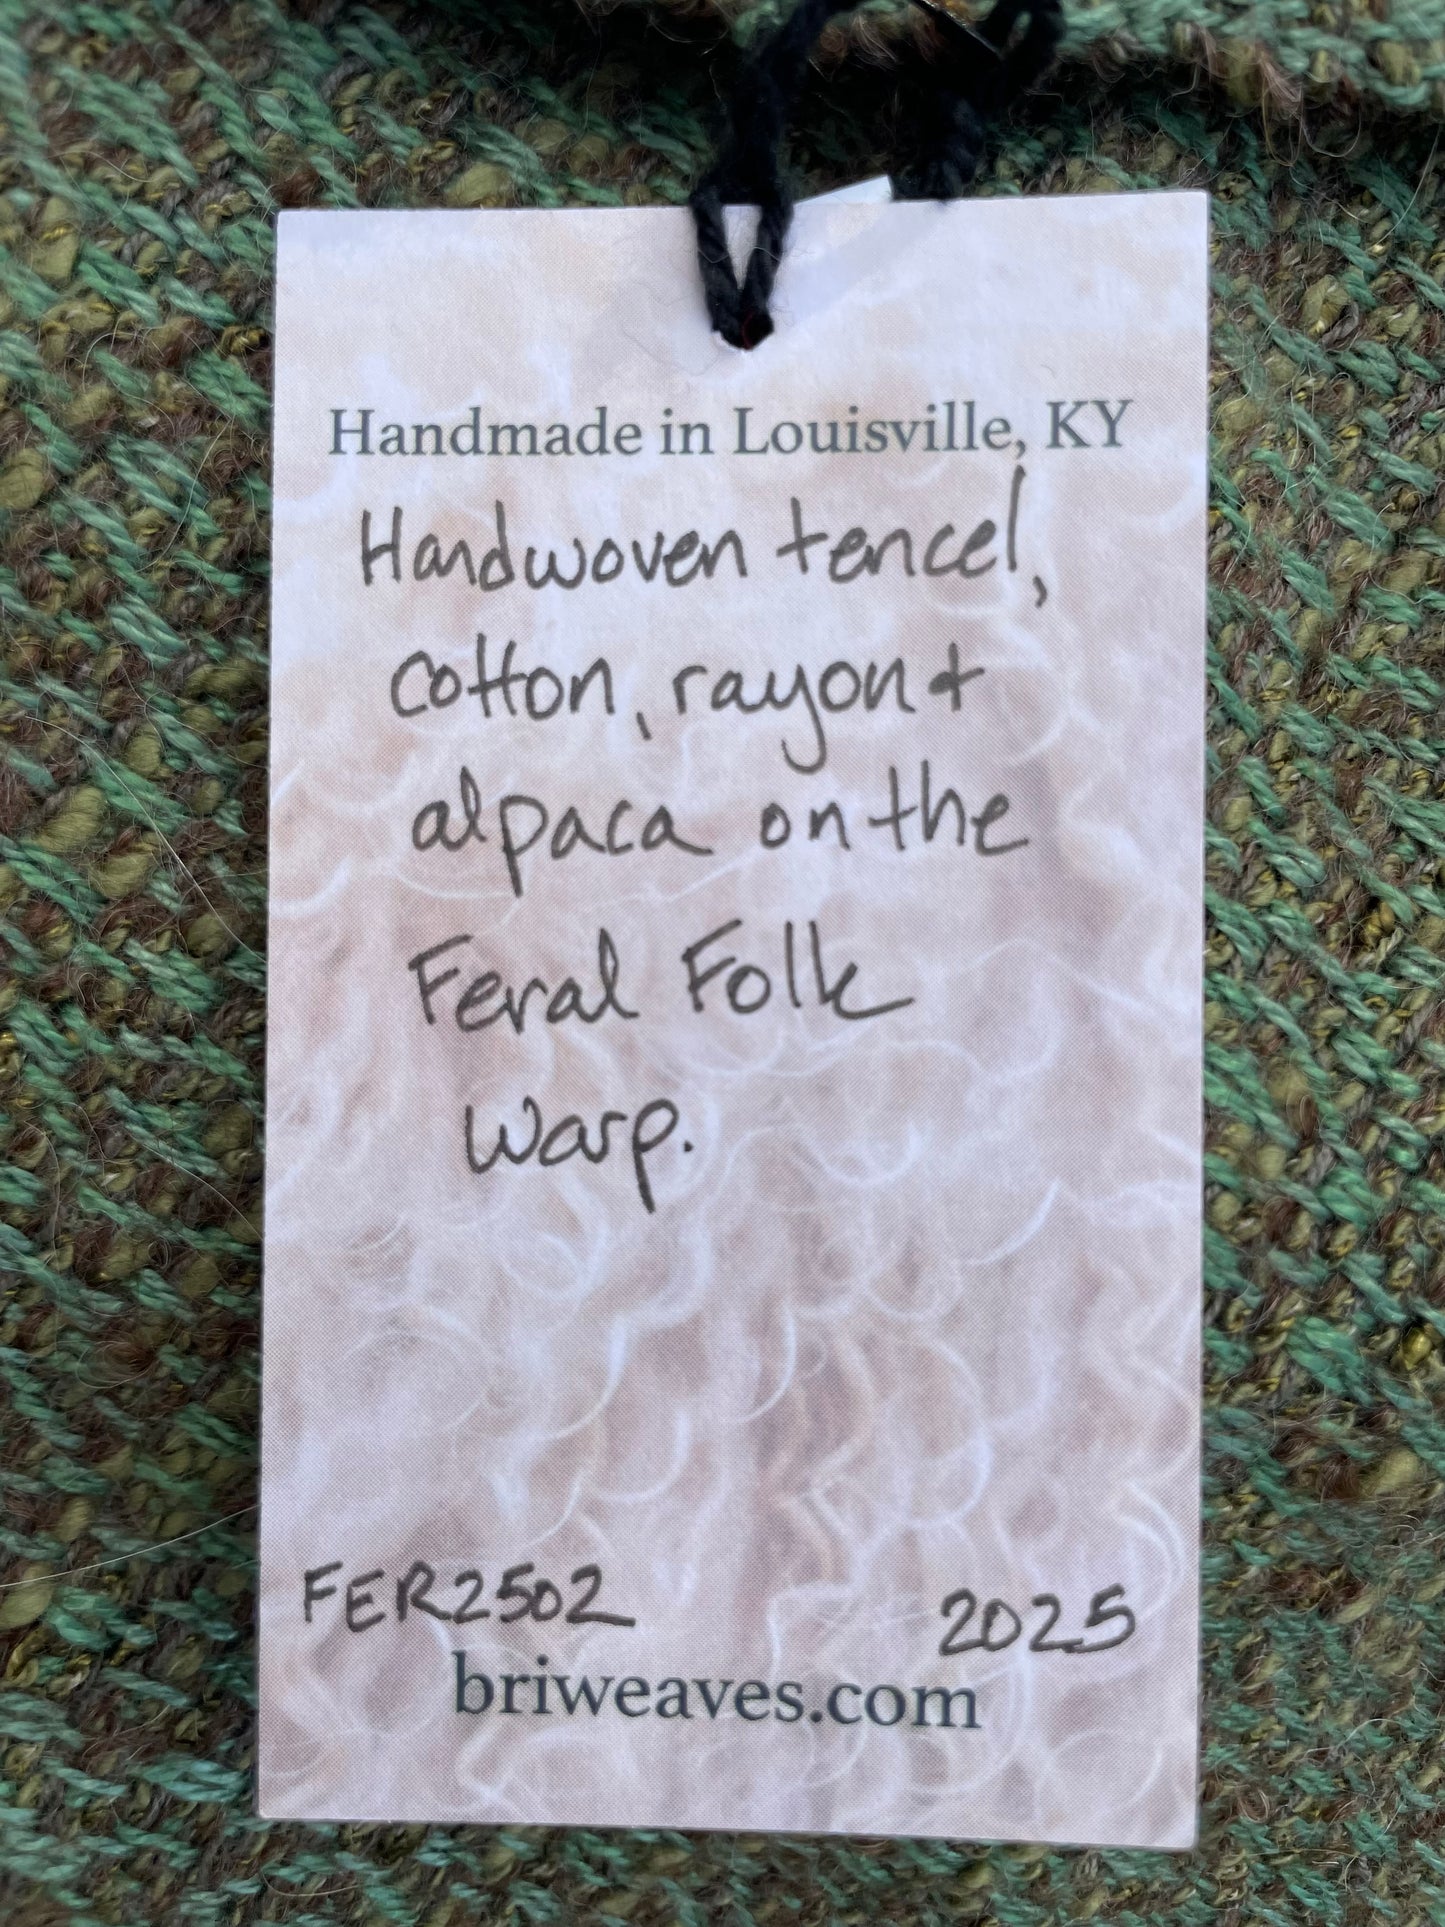 Handmade in Louisville, KY
Handwoven tencel,
cotton, rayon +
alpaca on the
Feral Folk
warp.
FER2502 2025
briweaves.com